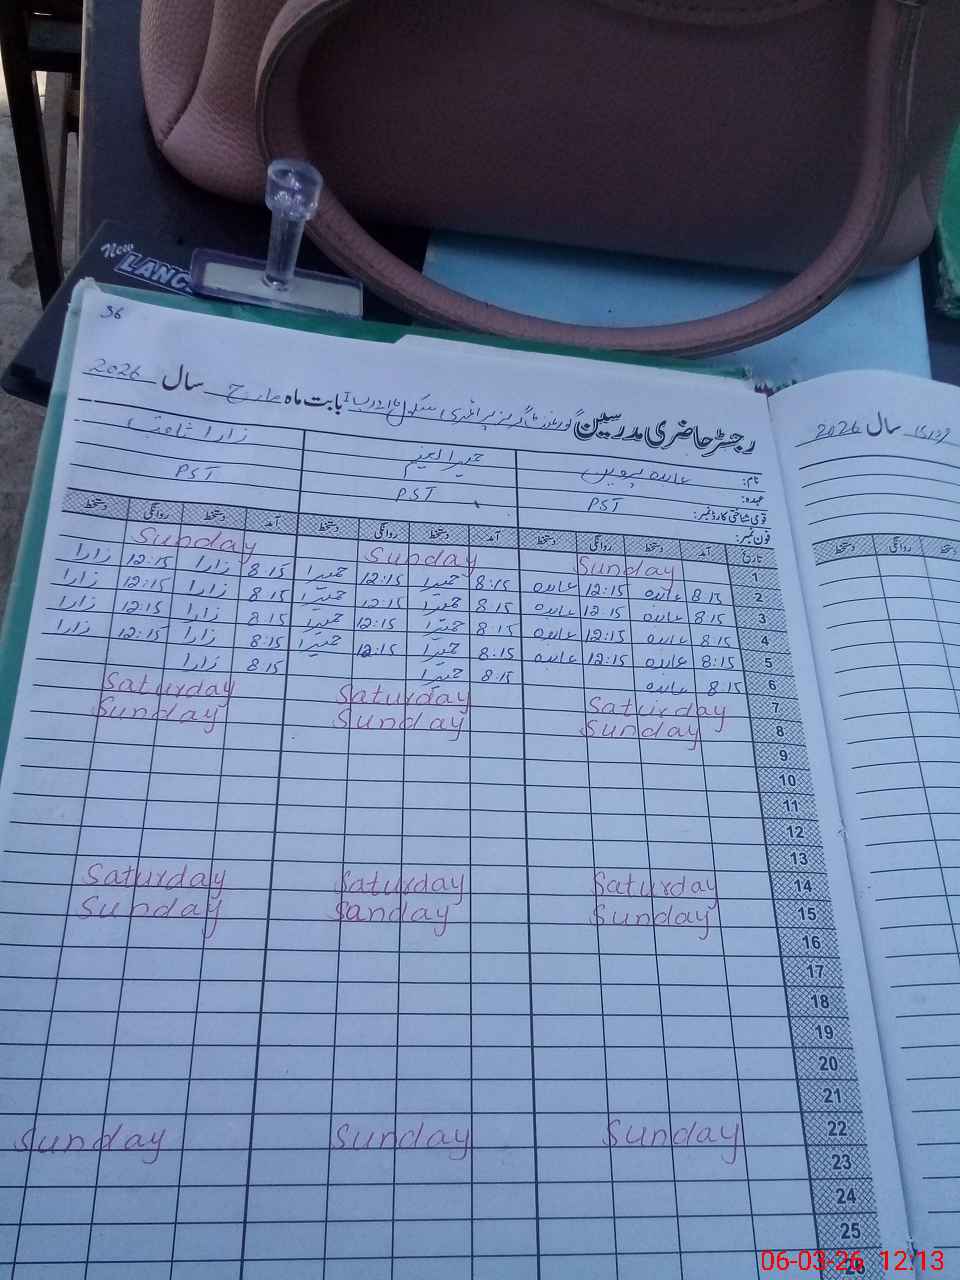 New
LANC
56
رجسٹر حاضری مدرسین گورنمنٹ گرلز پرائمری سکول بابت ماہ مارچ سال 2026
نام: عابدہ پروین حمیرا نعیم زارا ثاقب
عہدہ: PST PST PST
قومی شناختی کارڈ نمبر:
فون نمبر:
تاریخ آمد دستخط روانگی دستخط آمد دستخط روانگی دستخط آمد دستخط روانگی دستخط
1 Sunday Sunday Sunday
2 8:15 عابدہ 12:15 عابدہ 8:15 حمیرا 12:15 حمیرا 8:15 زارا 12:15 زارا
3 8:15 عابدہ 12:15 عابدہ 8:15 حمیرا 12:15 حمیرا 8:15 زارا 12:15 زارا
4 8:15 عابدہ 12:15 عابدہ 8:15 حمیرا 12:15 حمیرا 8:15 زارا 12:15 زارا
5 8:15 عابدہ 12:15 عابدہ 8:15 حمیرا 12:15 حمیرا 8:15 زارا 12:15 زارا
6 8:15 عابدہ 8:15 حمیرا 8:15 زارا
7 Saturday Saturday Saturday
8 Sunday Sunday Sunday
9
10
11
12
13
14 Saturday Saturday Saturday
15 Sunday Sanday Sunday
16
17
18
19
20
21
22 Sunday Sunday Sunday
23
24
25
26
سال 2026
دستخط روانگی دستخط
06-03-26 12:13